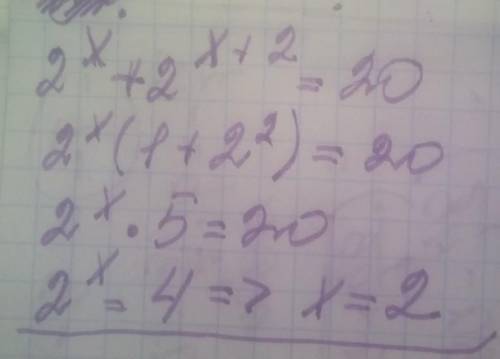 2^x + 2^{x+2} = 20
2^x (1 + 2^2) = 20
2^x · 5 = 20
2^x = 4 => x = 2